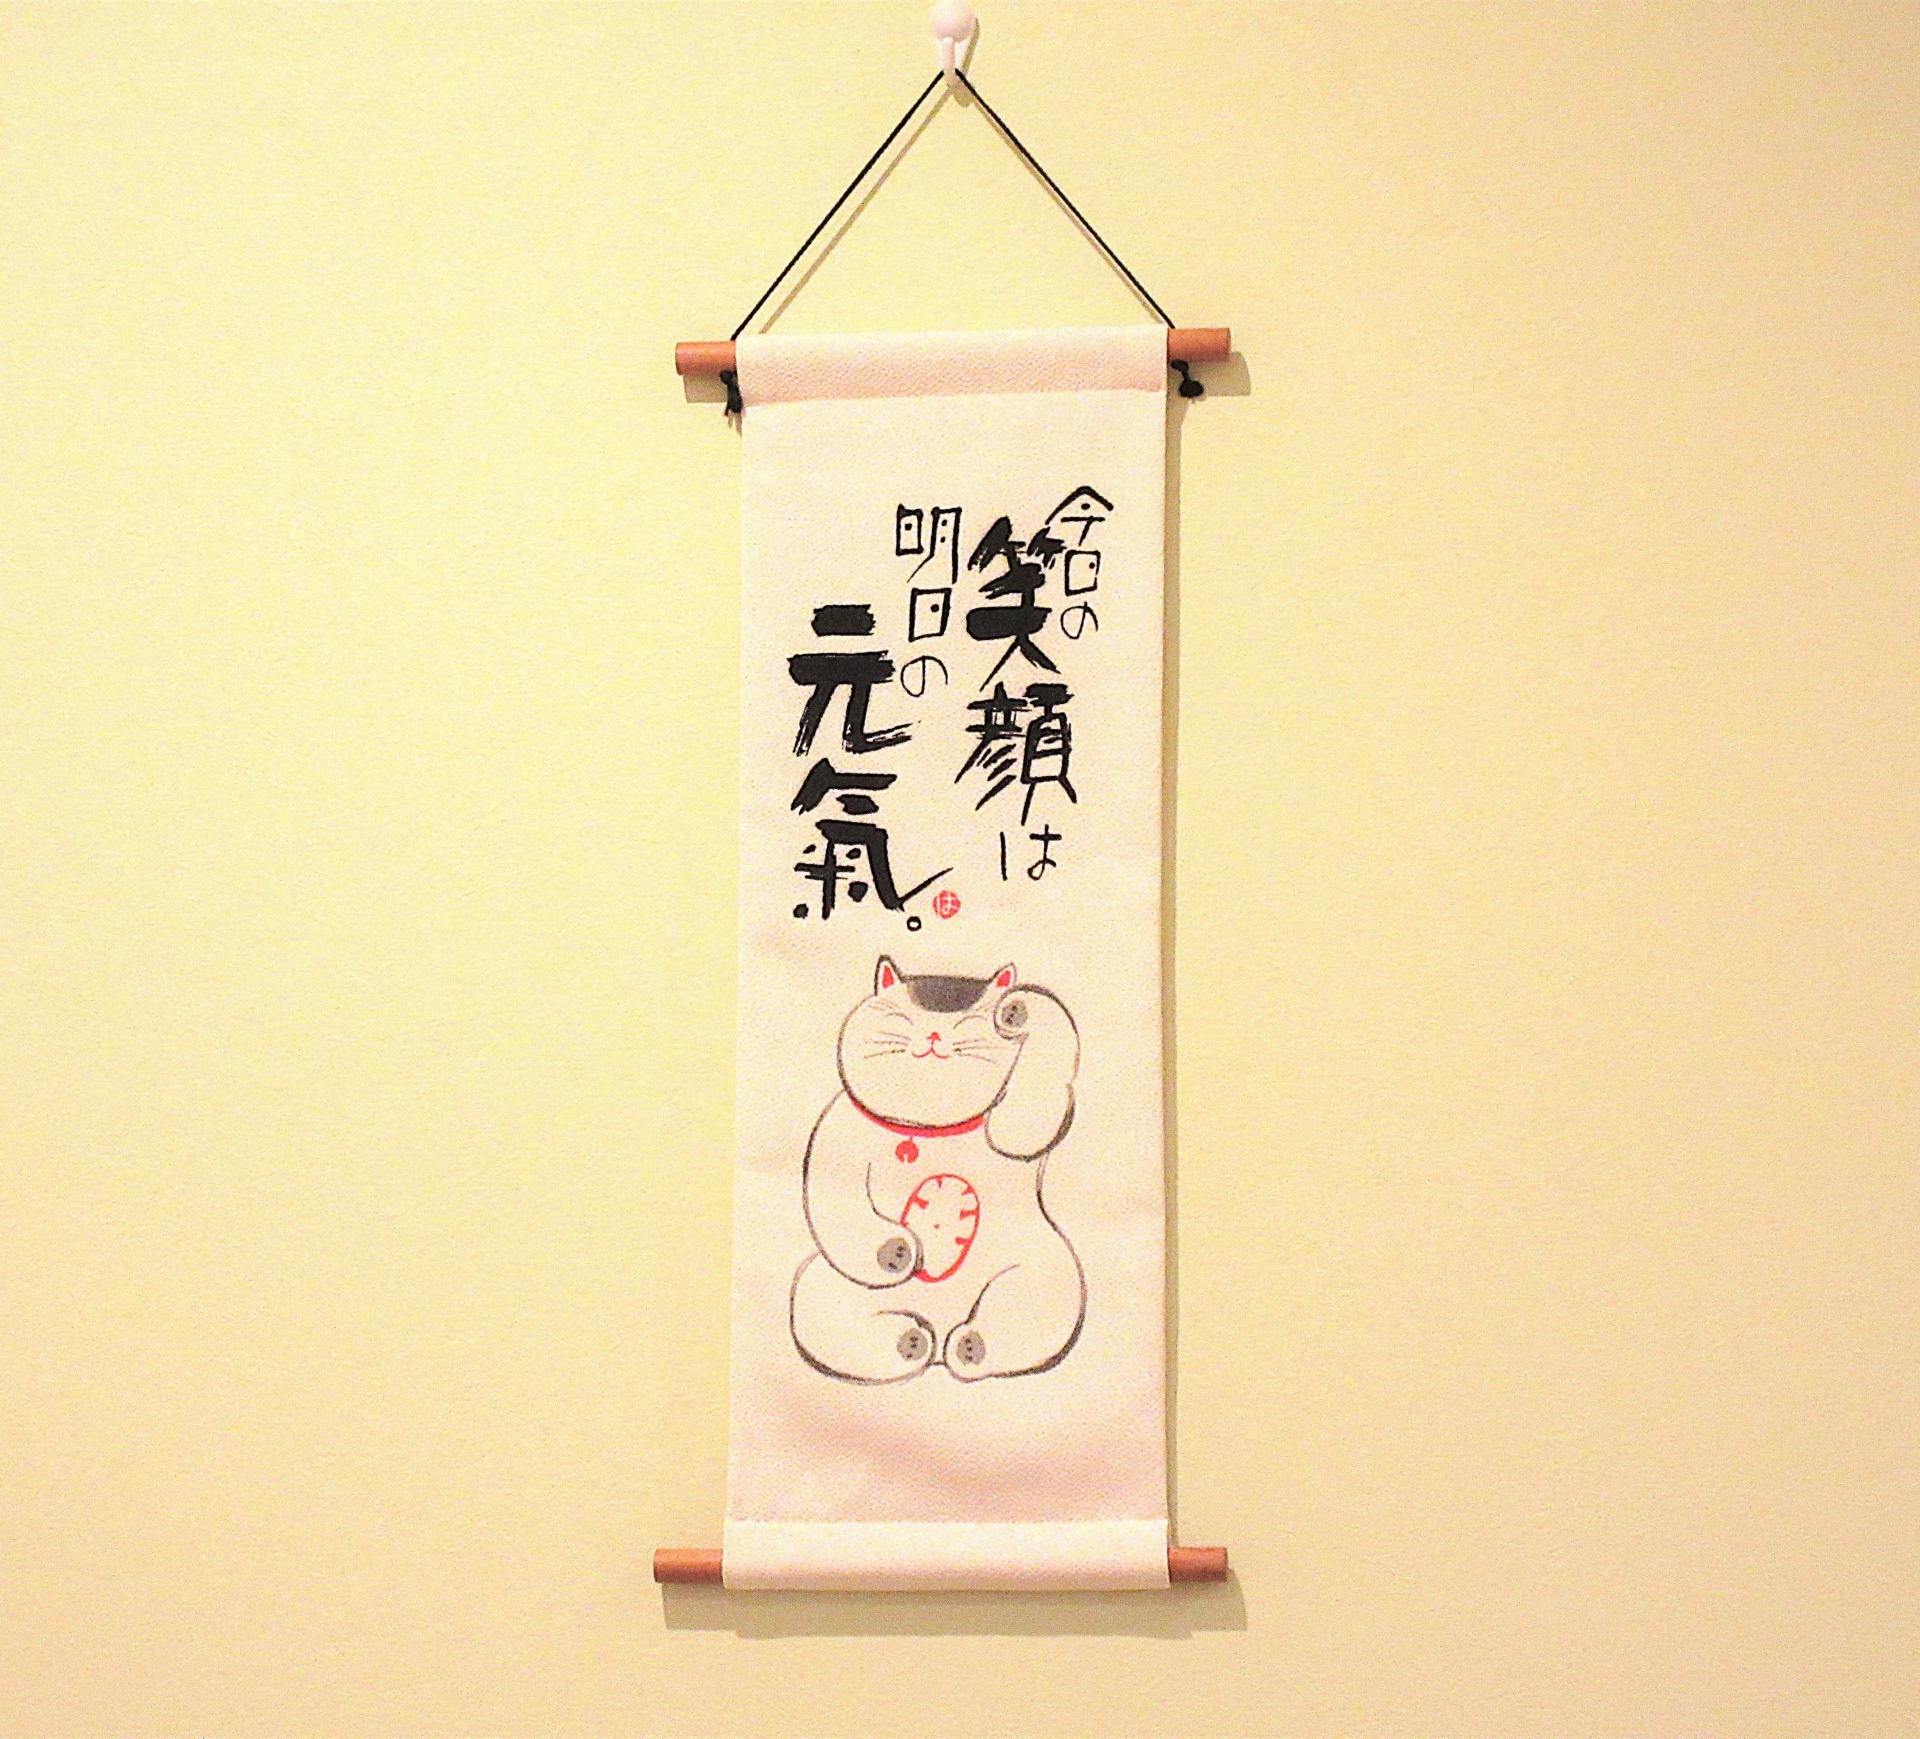 今日の
笑顔は
明日の
元氣。
は